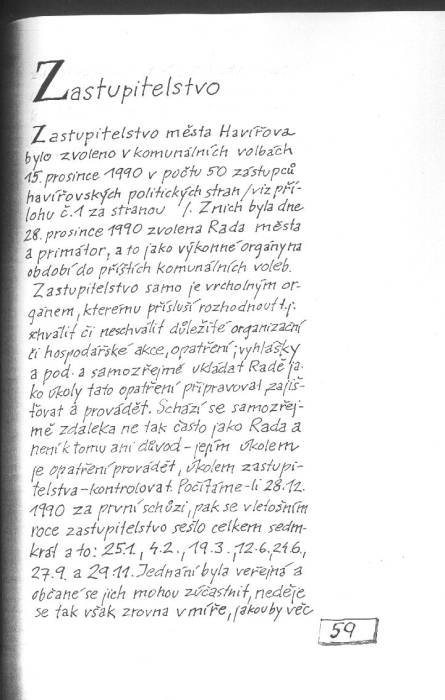 Zastupitelstvo
Zastupitelstvo města Havířova
bylo zvoleno v komunálních volbách
15. prosince 1990 v počtu 50 zástupců
havířovských politických stran /viz pří-
lohu č.1 za stranou /. Z nich byla dne
28. prosince 1990 zvolena Rada města
a primátor, a to jako výkonné orgány na
období do příštích komunálních voleb.
Zastupitelstvo samo je vrcholným or-
gánem, kterému přísluší rozhodnout t.j.
schválit či neschválit důležité organizační
či hospodářské akce, opatření, vyhlášky
a pod. a samozřejmě ukládat Radě ja-
ko úkoly tato opatření připravovat, zajiš-
ťovat a provádět. Schází se samozřej-
mě zdaleka ne tak často jako Rada a
není k tomu ani důvod - jejím úkolem
je opatření provádět, úkolem zastupi-
telstva - kontrolovat. Počítáme-li 28.12.
1990 za první schůzi, pak se v letošním
roce zastupitelstvo sešlo celkem sedm-
krát a to: 25.1., 4.2., 19.3., 12.6., 24.6.,
27.9. a 29.11. Jednání byla veřejná a
občané se jich mohou zúčastnit, neděje
se tak však zrovna v míře, jakou by věc
59